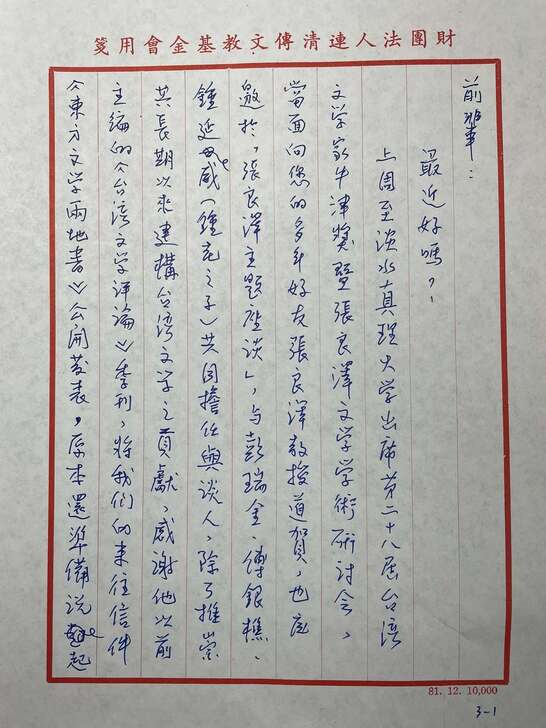 財團法人連清傳文教基金會用箋
前輩：
最近好嗎？
上周至淡水真理大学出席第二十八届台湾
文学家牛津獎暨張良澤文学学術研讨会，
當面向您的多年好友張良澤教授道賀，也应
邀於「張良澤主題座谈」，与彭瑞金、傅銀樵、
鍾延威（鍾老之子）共同擔任與谈人，除了推崇
其長期以来建構台湾文学之貢獻，感谢他以前
主编的《台湾文学评论》季刊，将我们的来往信件
《東方文学兩地書》公開发表，原本還準備说起
81. 12. 10,000
3-1